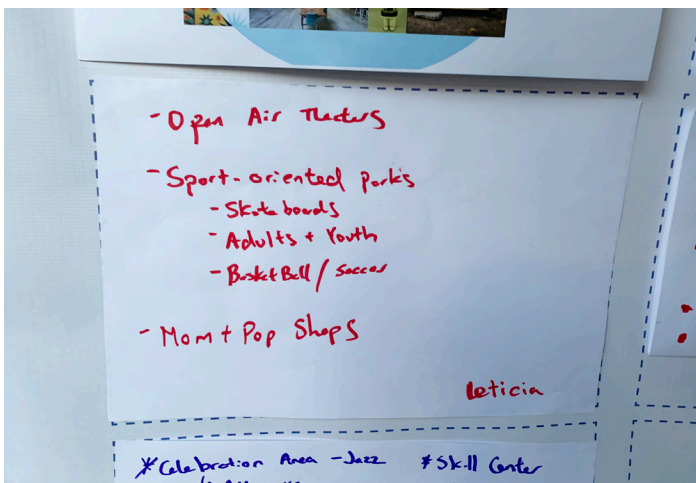 - Open Air Theaters
- Sport-oriented Parks
- Skateboards
- Adults + Youth
- BasketBall / Soccer
- Mom + Pop Shops
Leticia
* Celebration Area - Jazz * Skill Center